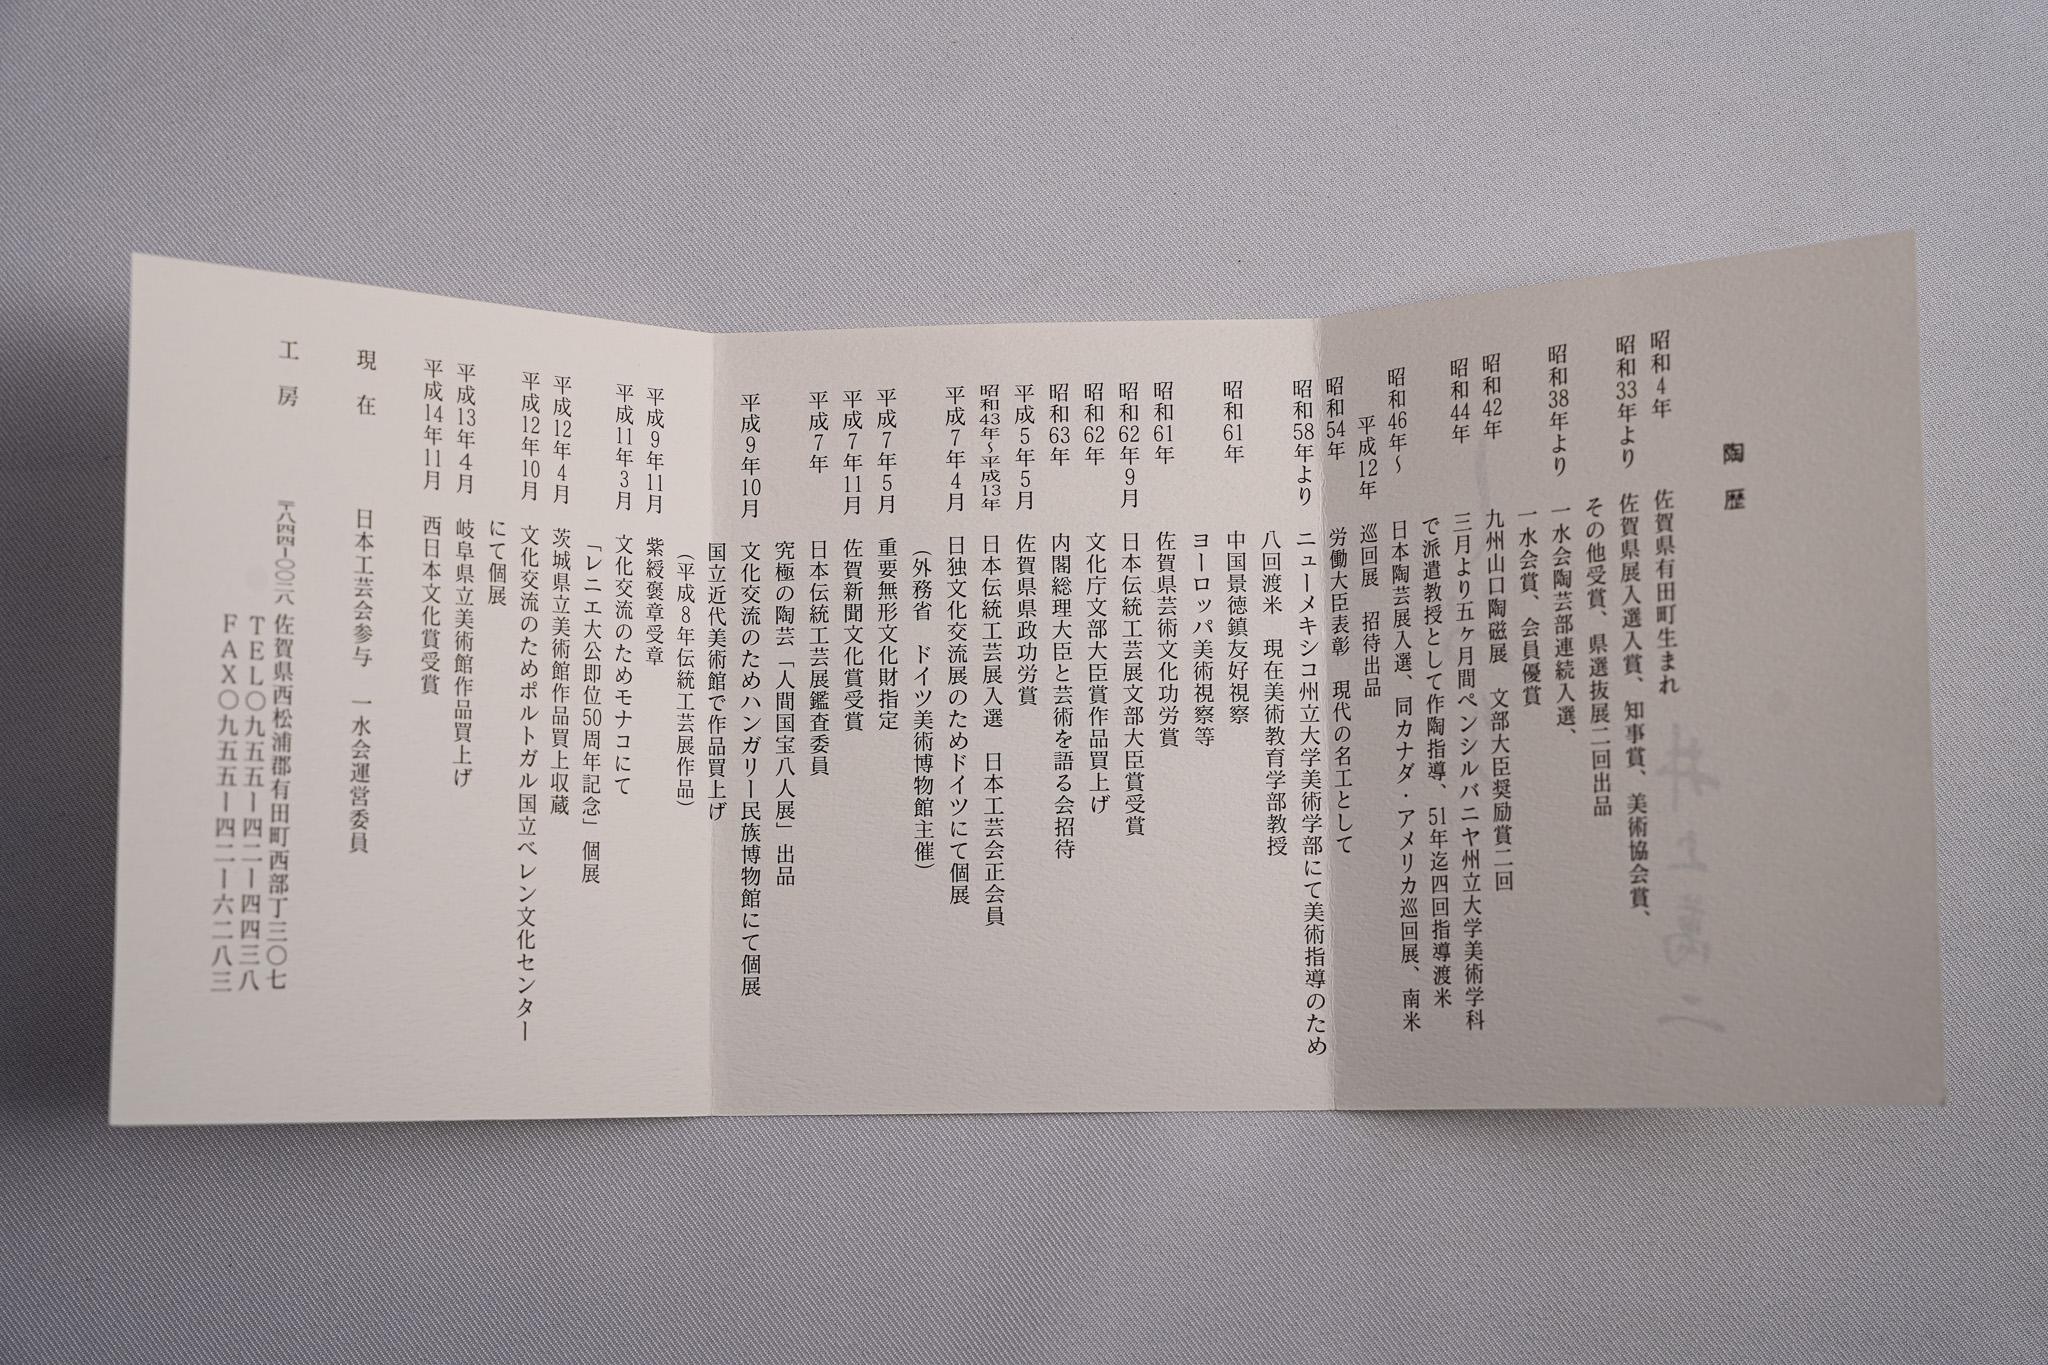 陶歴
昭和4年 佐賀県有田町生まれ
昭和33年より 佐賀県展入選入賞、知事賞、美術協会賞、
その他受賞、県選抜展二回出品
昭和38年より 一水会陶芸部連続入選、
一水会賞、会員優賞
昭和42年 九州山口陶磁展 文部大臣奨励賞二回
昭和44年 三月より五ヶ月間ペンシルバニヤ州立大学美術学科
で派遣教授として作陶指導、51年迄四回指導渡米
昭和46年〜 日本陶芸展入選、同カナダ・アメリカ巡回展、南米
平成12年 巡回展 招待出品
昭和54年 労働大臣表彰 現代の名工として
昭和58年より ニューメキシコ州立大学美術学部にて美術指導のため
八回渡米 現在美術教育学部教授
昭和61年 中国景徳鎮友好視察
ヨーロッパ美術視察等
昭和61年 佐賀県芸術文化功労賞
昭和62年9月 日本伝統工芸展文部大臣賞受賞
昭和62年 文化庁文部大臣賞作品買上げ
昭和63年 内閣総理大臣と芸術を語る会招待
平成5年5月 佐賀県県政功労賞
昭和43年〜平成13年 日本伝統工芸展入選 日本工芸会正会員
平成7年4月 日独文化交流展のためドイツにて個展
(外務省 ドイツ美術博物館主催)
平成7年5月 重要無形文化財指定
平成7年11月 佐賀新聞文化賞受賞
平成7年 日本伝統工芸展鑑査委員
究極の陶芸「人間国宝八人展」出品
平成9年10月 文化交流のためハンガリー民族博物館にて個展
国立近代美術館で作品買上げ
(平成8年伝統工芸展作品)
平成9年11月 紫綬褒章受章
平成11年3月 文化交流のためモナコにて
「レニエ大公即位50周年記念」個展
平成12年4月 茨城県立美術館作品買上収蔵
平成12年10月 文化交流のためポルトガル国立ベレン文化センター
にて個展
平成13年4月 岐阜県立美術館作品買上げ
平成14年11月 西日本文化賞受賞
現在 日本工芸会参与 一水会運営委員
工房 〒八四四-〇〇二八 佐賀県西松浦郡有田町西部丁三〇七
TEL〇九五五-四二-四四三八
FAX〇九五五-四二-六二八三
井上萬二